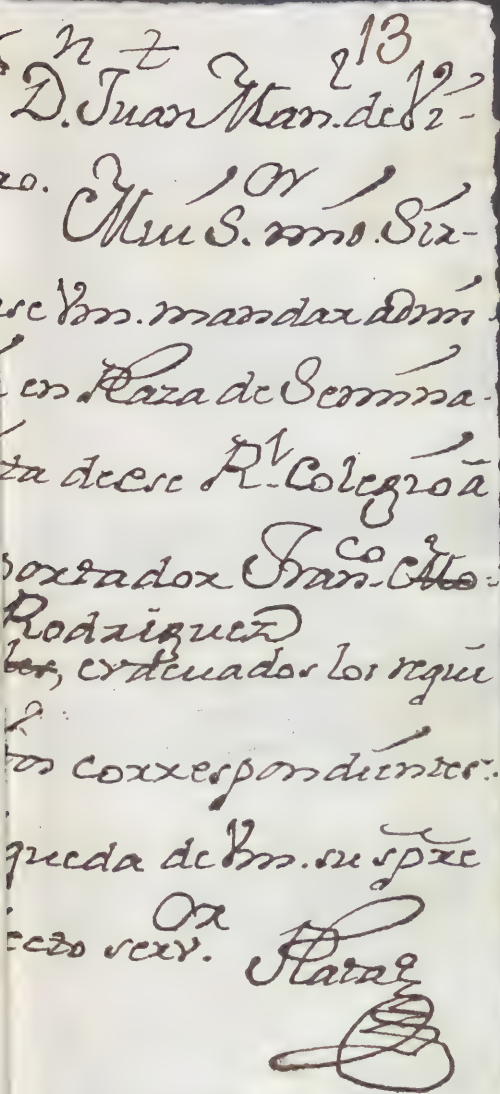 13
D. Juan Man.l de Vi-
ao.
Mui S.or mio. Sir-
ase Vm. mandar admi
en Plaza de Semina-
ta de ese R.l Colegio à
portador Fran.co
Rodriguez
evacuados los requi
tos correspondientes.
queda de Vm. su spre
ecto serv.or
Plaza